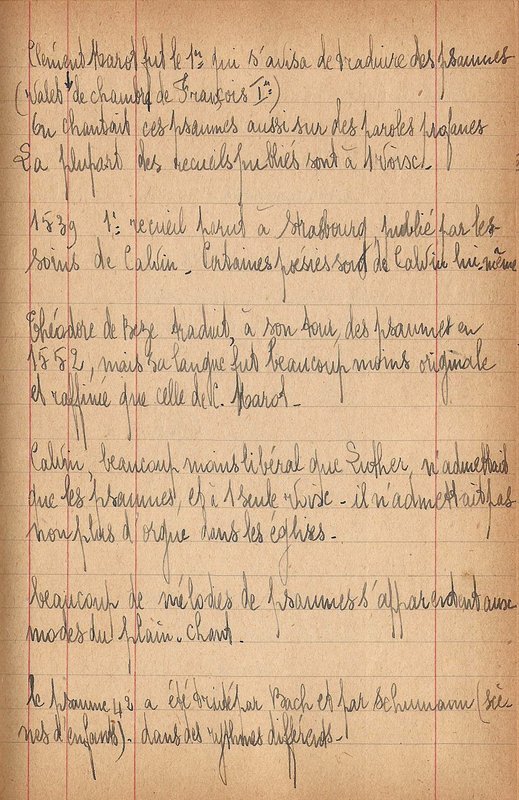 Clément Marot fut le 1er qui s'avisa de traduire des psaumes
(valet de chambre de François Ier)
On chantait ces psaumes aussi sur des paroles profanes
La plupart des recueils publiés sont à 1 voix.
1539 1er recueil parut à Strasbourg, publié par les
soins de Calvin _ Certaines poésies sont de Calvin lui-même
Théodore de Beze traduit, à son tour, des psaumes en
1552, mais sa langue fut beaucoup moins originale
et raffinée que celle de C. Marot _
Calvin, beaucoup moins libéral que Luther, n'admettait
que les psaumes, et à 1 seule voix _ il n'admettait pas
non plus d'orgue dans les églises _
beaucoup de mélodies de psaumes s'apparentent aux
modes du plain-chant.
le psaume 42 a été traité par Bach et par Schumann (scè-
nes d'enfants) _ dans des rythmes différents _